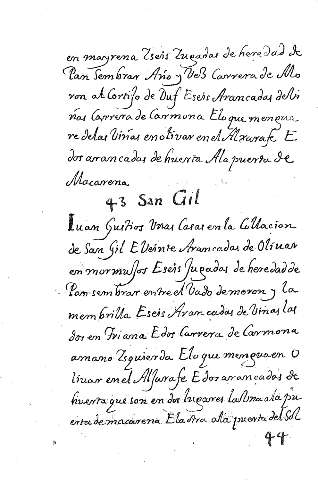 en mayrena Eseis Yugadas de heredad de
Pan sembrar Año y Vez Carrera de Mo
ron al Cortijo de Duf Eseis Arancadas de Vi
ñas Carrera de Carmona Elo que mengua
re de las Viñas en olivar en el Alxarafe E
dos arancadas de huerta Ala puerta de
Macarena
43 San Gil
Iuan Gustios Unas Casas en la Collacion
de San Gil E Veinte Arancadas de Olivar
en mormujos Eseis Jugadas de heredad de
Pan sembrar entre el Vado de moron y la
membrilla Eseis Arancadas de Viñas las
dos en Triana E dos Carrera de Carmona
amano Izquierda Elo que mengua en O
livar en el Aljarafe E dos arancadas de
huerta que son en dos lugares la Una ala pu
erta de macarena E la otra ala puerta del Sol
44